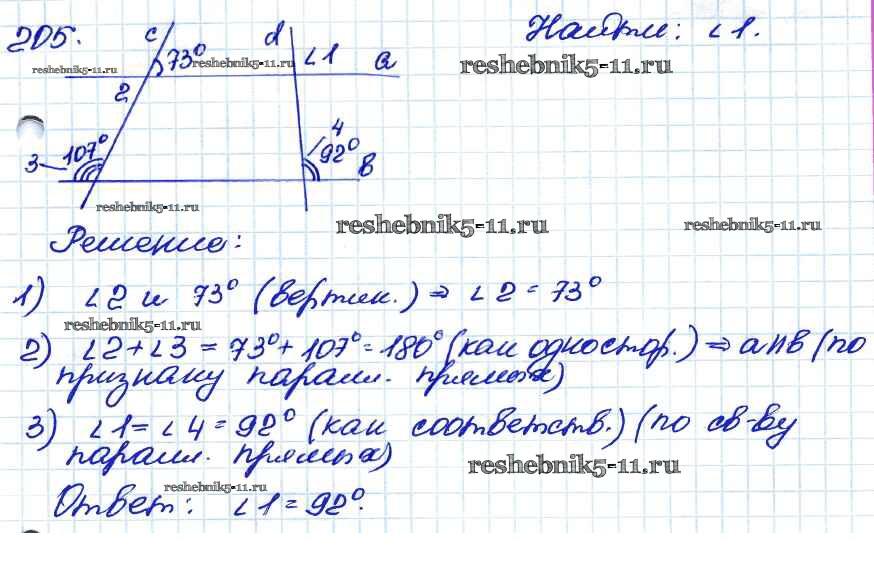 205.
c
73°
d
∠1
a
Найти: ∠1.
reshebnik5-11.ru
reshebnik5-11.ru
reshebnik5-11.ru
2
3
107°
4
92°
в
reshebnik5-11.ru
reshebnik5-11.ru
reshebnik5-11.ru
Решение:
1) ∠2 и 73° (вертик.) ⇒ ∠2 = 73°
reshebnik5-11.ru
2) ∠2+∠3 = 73°+107°=180° (как одностор.) ⇒ a||в (по
признаку паралл. прямых)
3) ∠1=∠4=92° (как соответств.) (по св-ву
паралл. прямых)
reshebnik5-11.ru
reshebnik5-11.ru
Ответ: ∠1=92°.